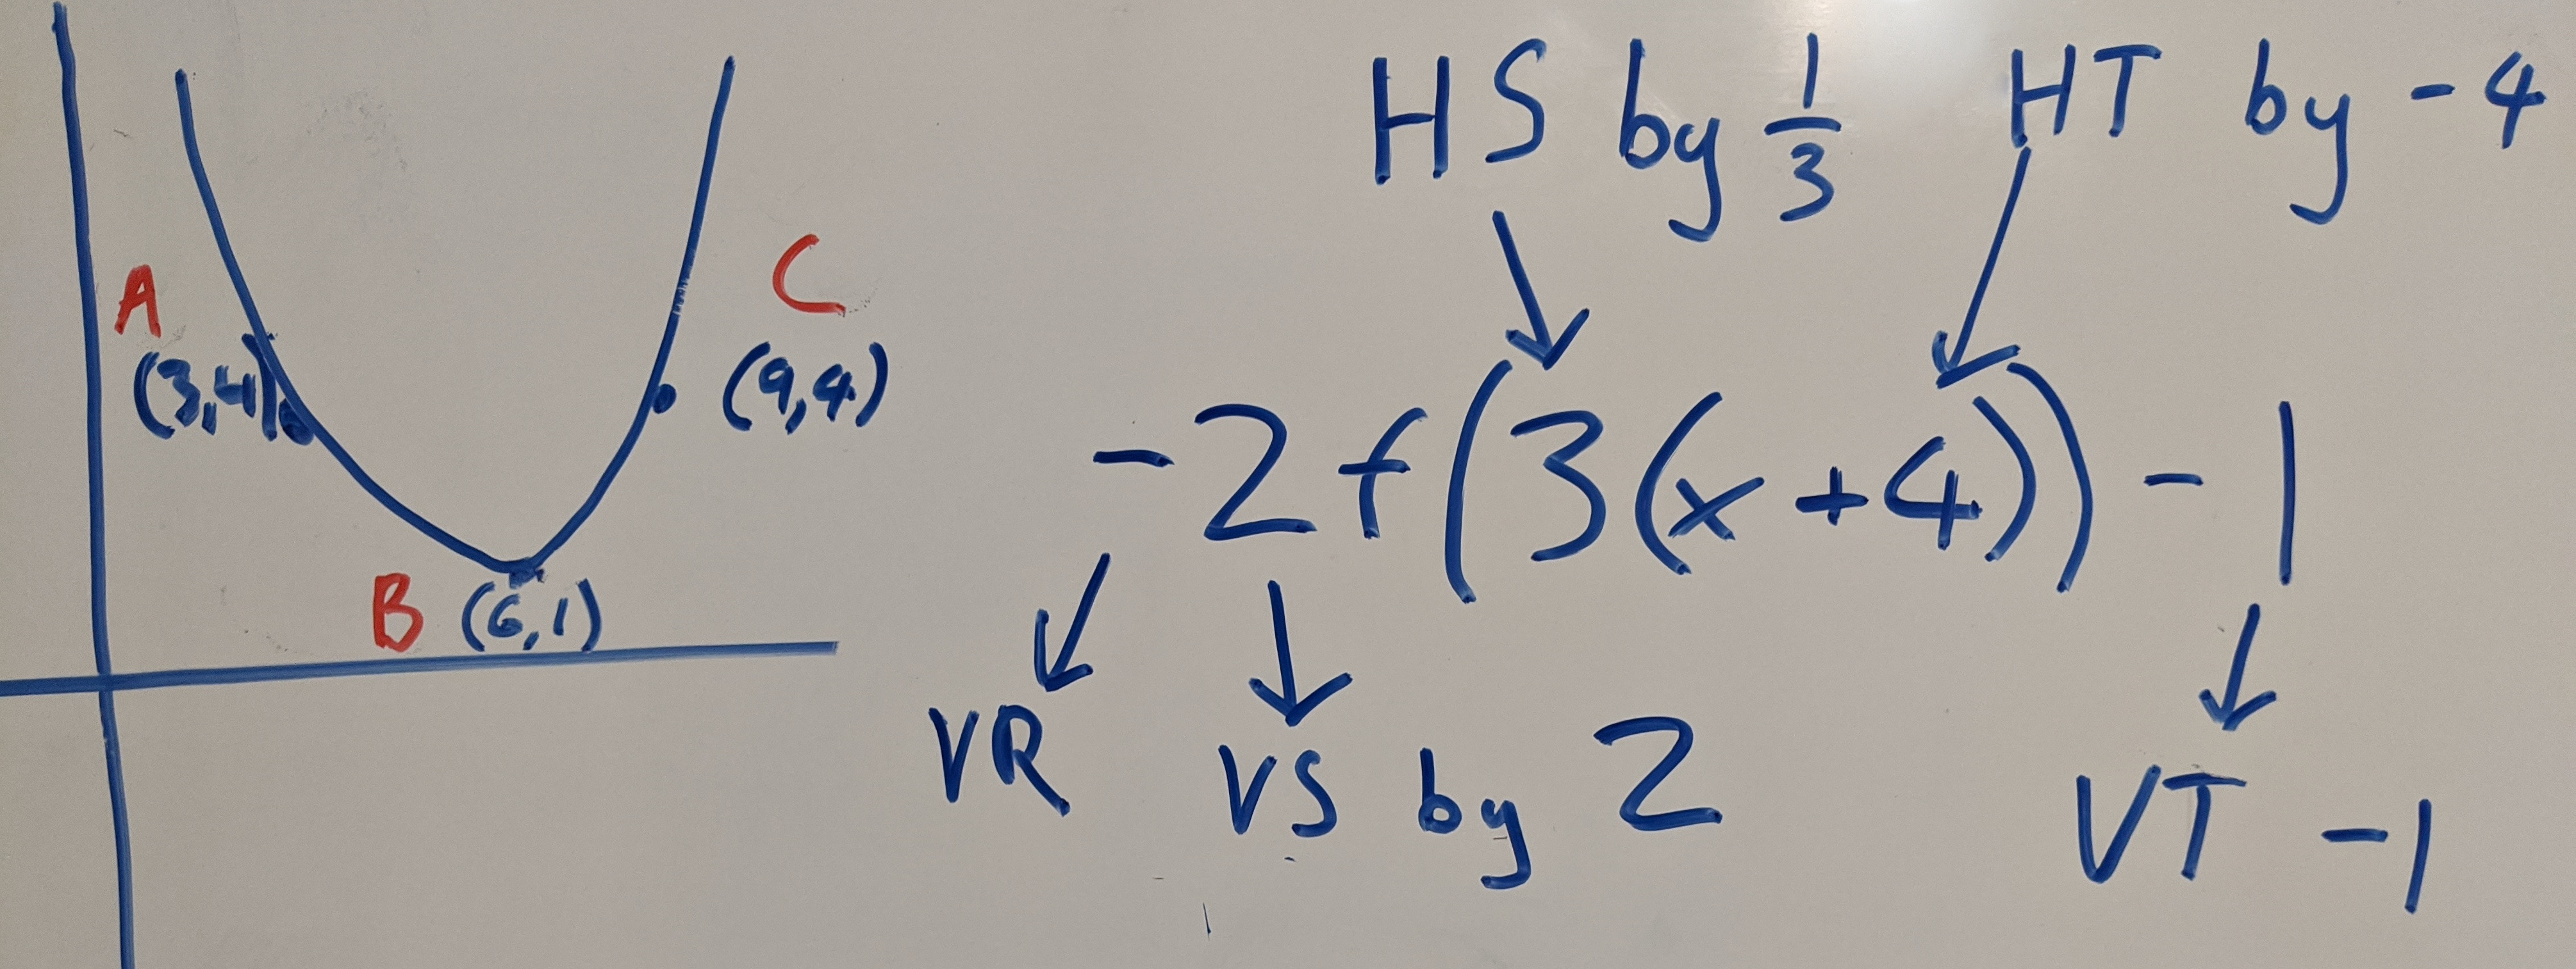 A
(3,4)
B (6,1)
C
(9,4)
HS by 1/3 HT by -4
-2f(3(x+4))-1
VR VS by 2 VT -1